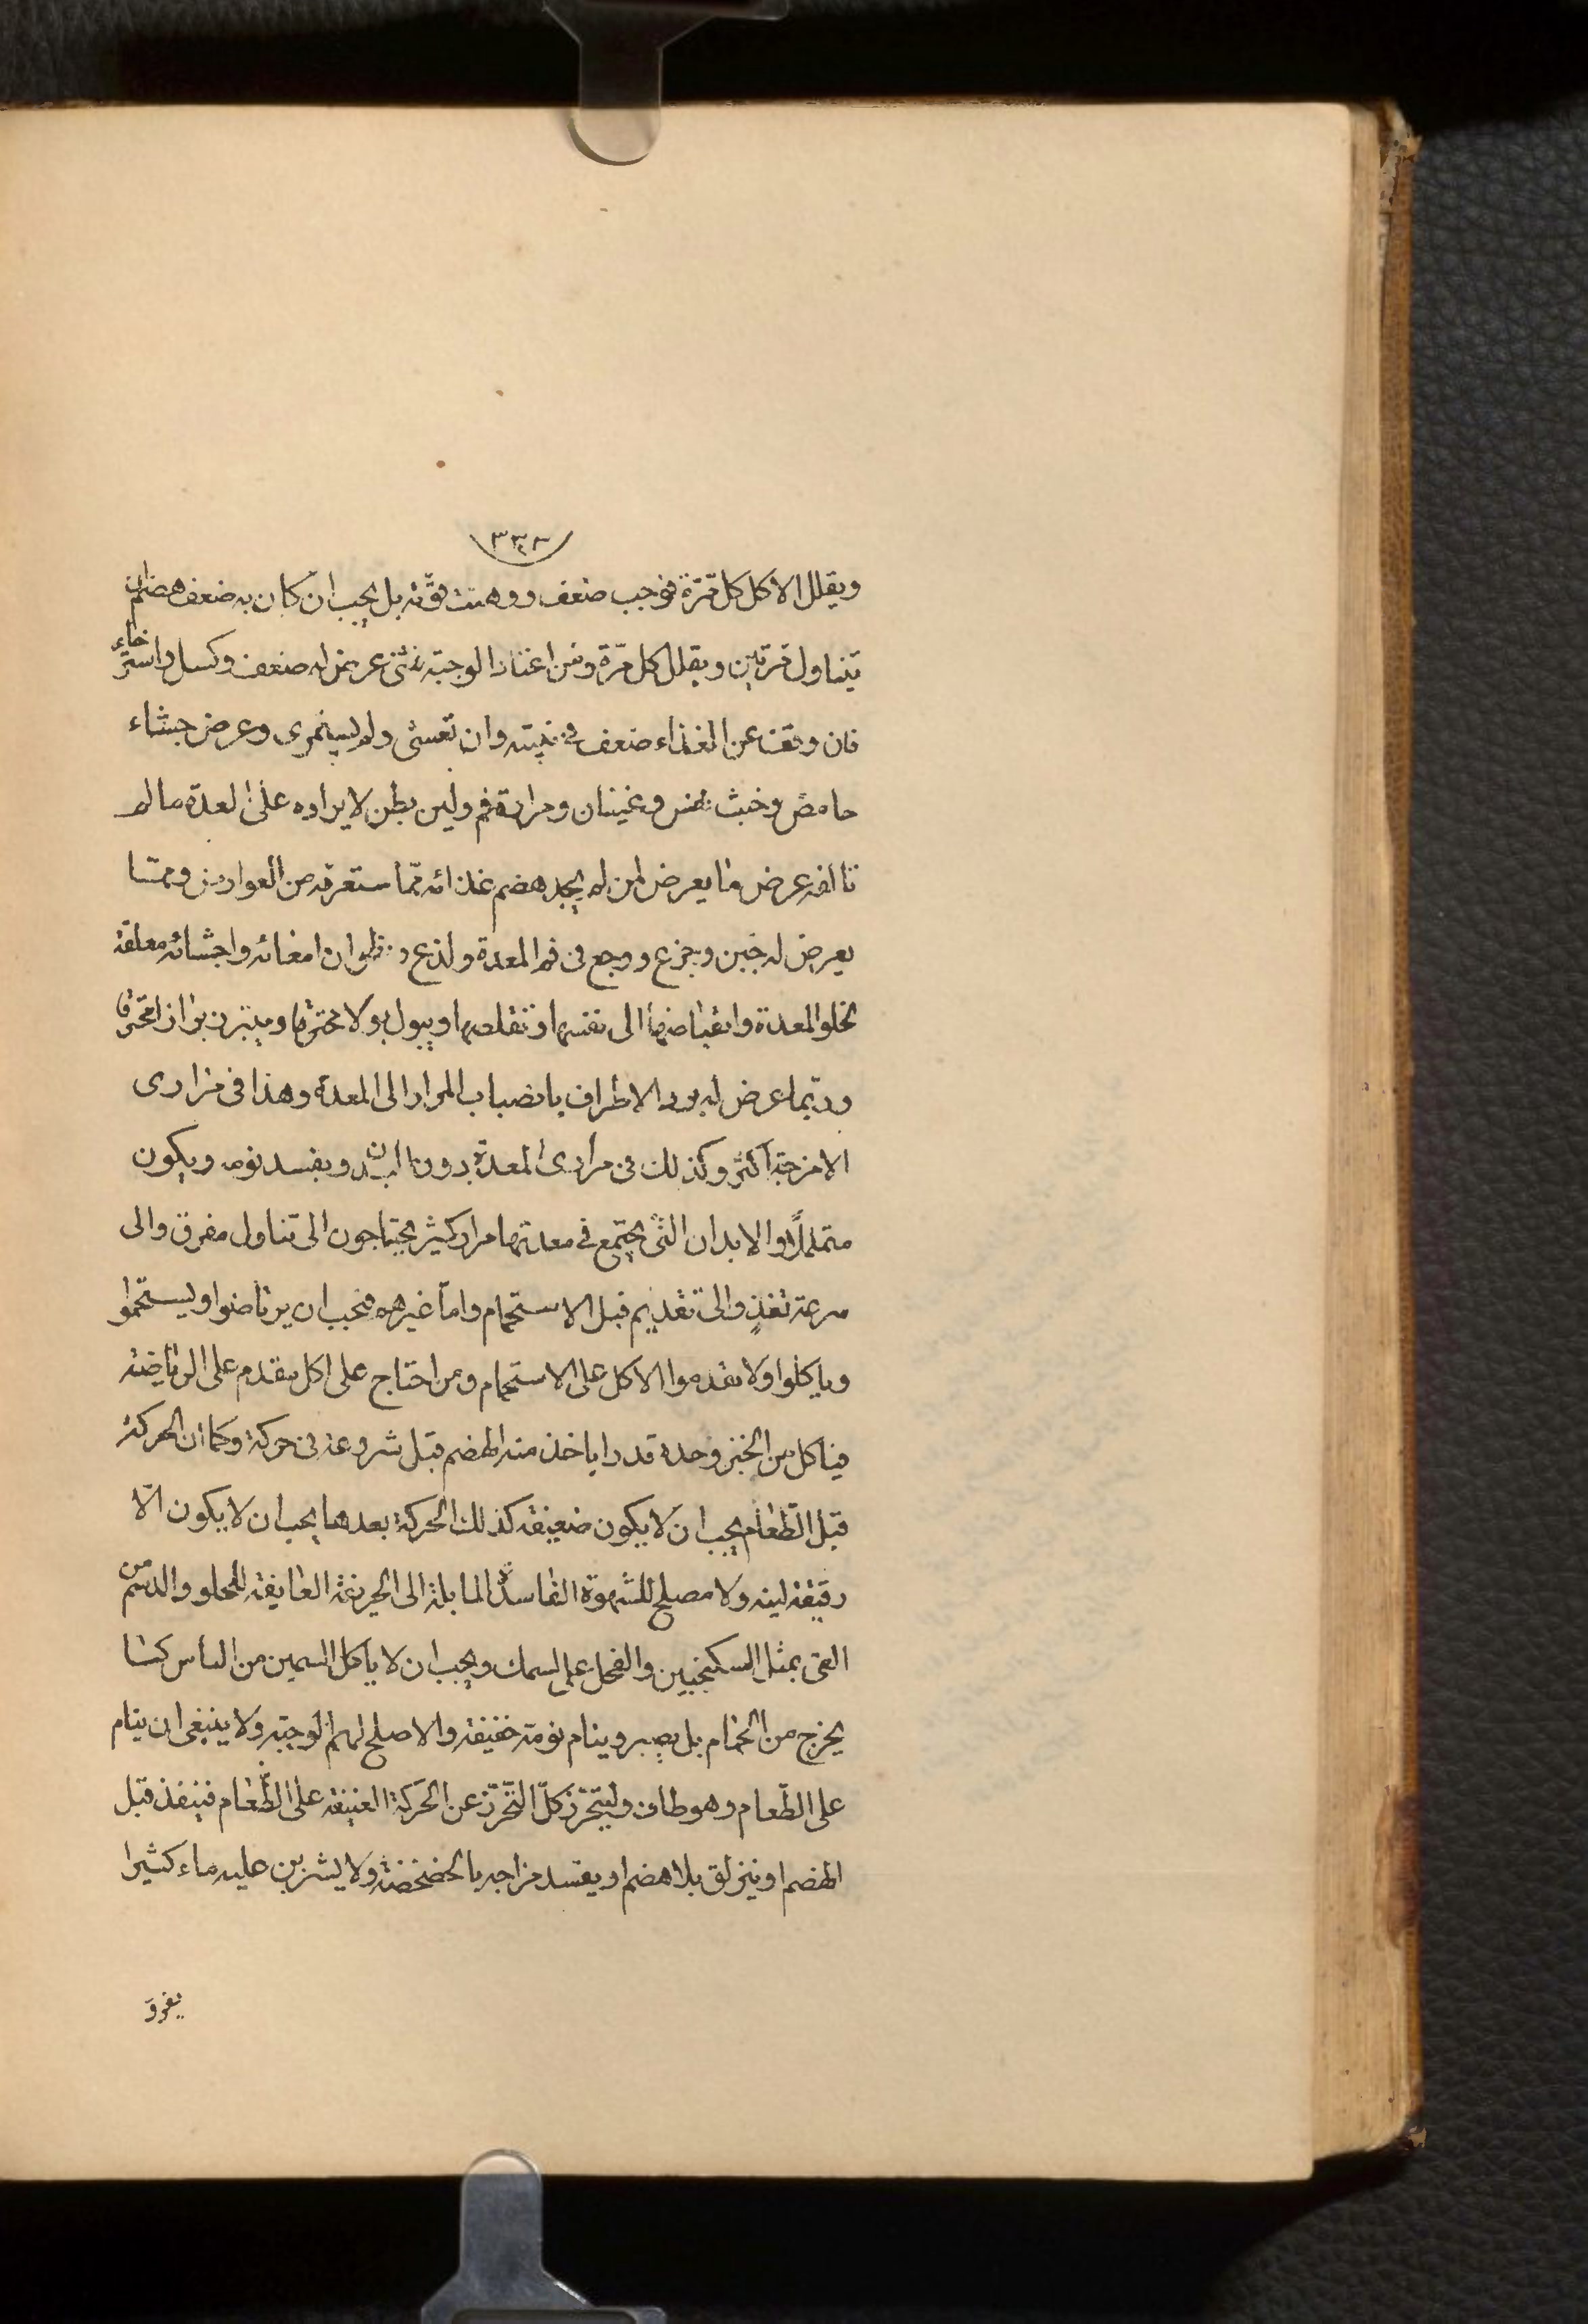 ٣٣٣
ويقلل الاكل كل مرّة فوجب ضعف ووهنت قوّته بل يجب ان كان به ضعف هضم ان
يتناول مرتين ويقلل كل مرّة ومن اعتاد الوجبة فثنى عرض له ضعف وكسل واسترخاء
فان وقف عن الغذاء ضعف فى وان تعشى ولم يستمرى وعرض جشاء
حامض وخبث نفس وغثيان ومرارة فم ولين بطن لايراده على المعدة ما لم
تالفه عرض ما يعرض لمن لم يجد هضم غذائه ممّا ستعرفه من العوارض وممّا
يعرض له جبن وجزع ووجع فى فم المعدة ولذع و ان امعائه واحشائه معلقة
لخلو المعدة وانقباضها الى نفسها وتقلصها ويبول بولا محترقا ويبرز برازا محترقا
وربّما عرض له برد الاطراف بانصباب المرار الى المعدة وهذا فى مرارى
الامزجة اكثر وكذلك فى مرارى المعدة دون البدن ويفسد نومه ويكون
متململًا والابدان التى يجتمع فى معدتها مرار كثير يحتاجون الى تناول مفرق والى
سرعة تغذٍ والى تقديم قبل الاستحمام وامّا غيرهم فيجب ان يرتاضوا ويستحموا
وياكلوا ولا يقدموا الاكل على الاستحمام ومن احتاج على اكل يقدم على الرياضة
فياكل من الخبز وحده قدرا ياخذ منه الهضم قبل شروعه فى حركة وكما ان الحركة
قبل الطّعام يجب ان لا يكون ضعيفة كذلك الحركة بعدها يجب ان لا يكون الّا
رقيقة لينه ولا مصلح للشهوة الفاسدة المايلة الى الحريفة العايفة للحلو والدسم من
القى بمثل السكنجبين والفجل على السمك ويجب ان لا ياكل السمين من الناس كما
يخرج من الحمّام بل يصبر وينام نومة خفيفة والاصلح لهم الوجبة ولا ينبغى ان ينام
على الطّعام وهو طاف وليتحرّز كلّ التّحرّز عن الحركة العنيفة على الطّعام فينفذ قبل
الهضم او ينزلق بلا هضم او يفسد مزاجه بالخضخضة ولا يشربن عليه ماء كثيرا
يفرق